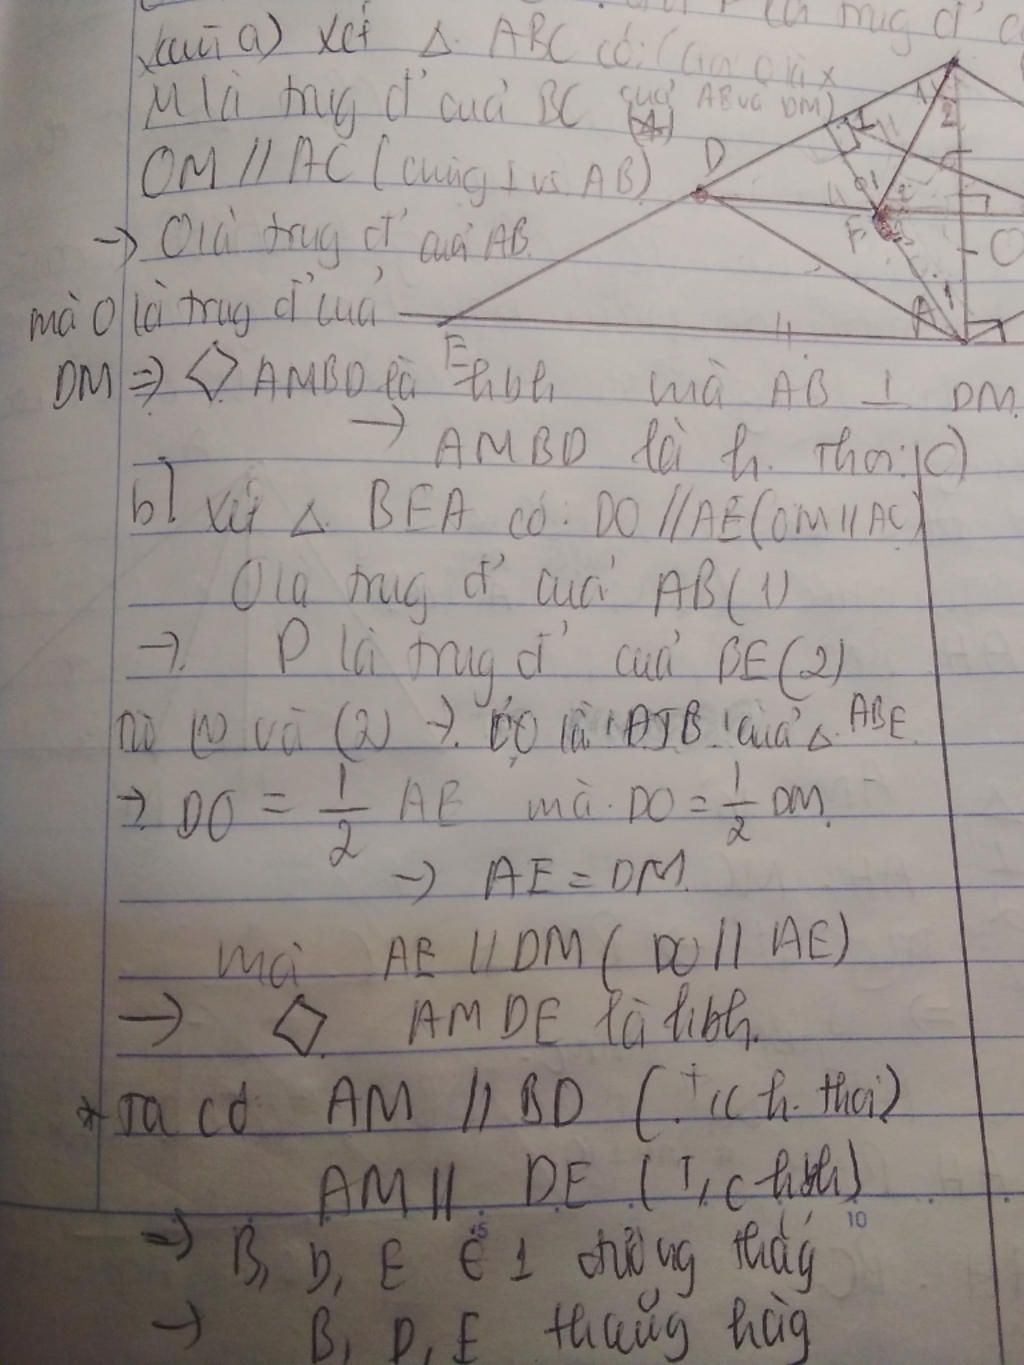 là trug đ' c
câu a) Xét △ ABC có: (Gọi O là x
M là trug đ' của BC của AB và DM)
OM // AC (cùng ⊥ vs AB)
→ O là trug đ' của AB
mà O là trug đ' của
DM ⇒ ◇ AMBD là hbh mà AB ⊥ DM
→ AMBD là h. thoi
c)
b) Xét △ BEA có: DO // AE (OM // AC)
O là trug đ' của AB (1)
→ D là trug đ' của BE (2)
Từ (1) và (2) → DO là ĐTB của △ ABE
→ DO = 1/2 AE mà DO = 1/2 DM
→ AE = DM
mà AE // DM (DO // AE)
→ ◇ AMDE là hbh.
* Ta có AM // BD (T/c h. thoi)
AM // DE (T/c hbh)
→ B, D, E ∈ 1 đường thẳg
→ B, D, E thẳng hàg
D
I
F
O
A
E
1
2
1
2
1
5
10